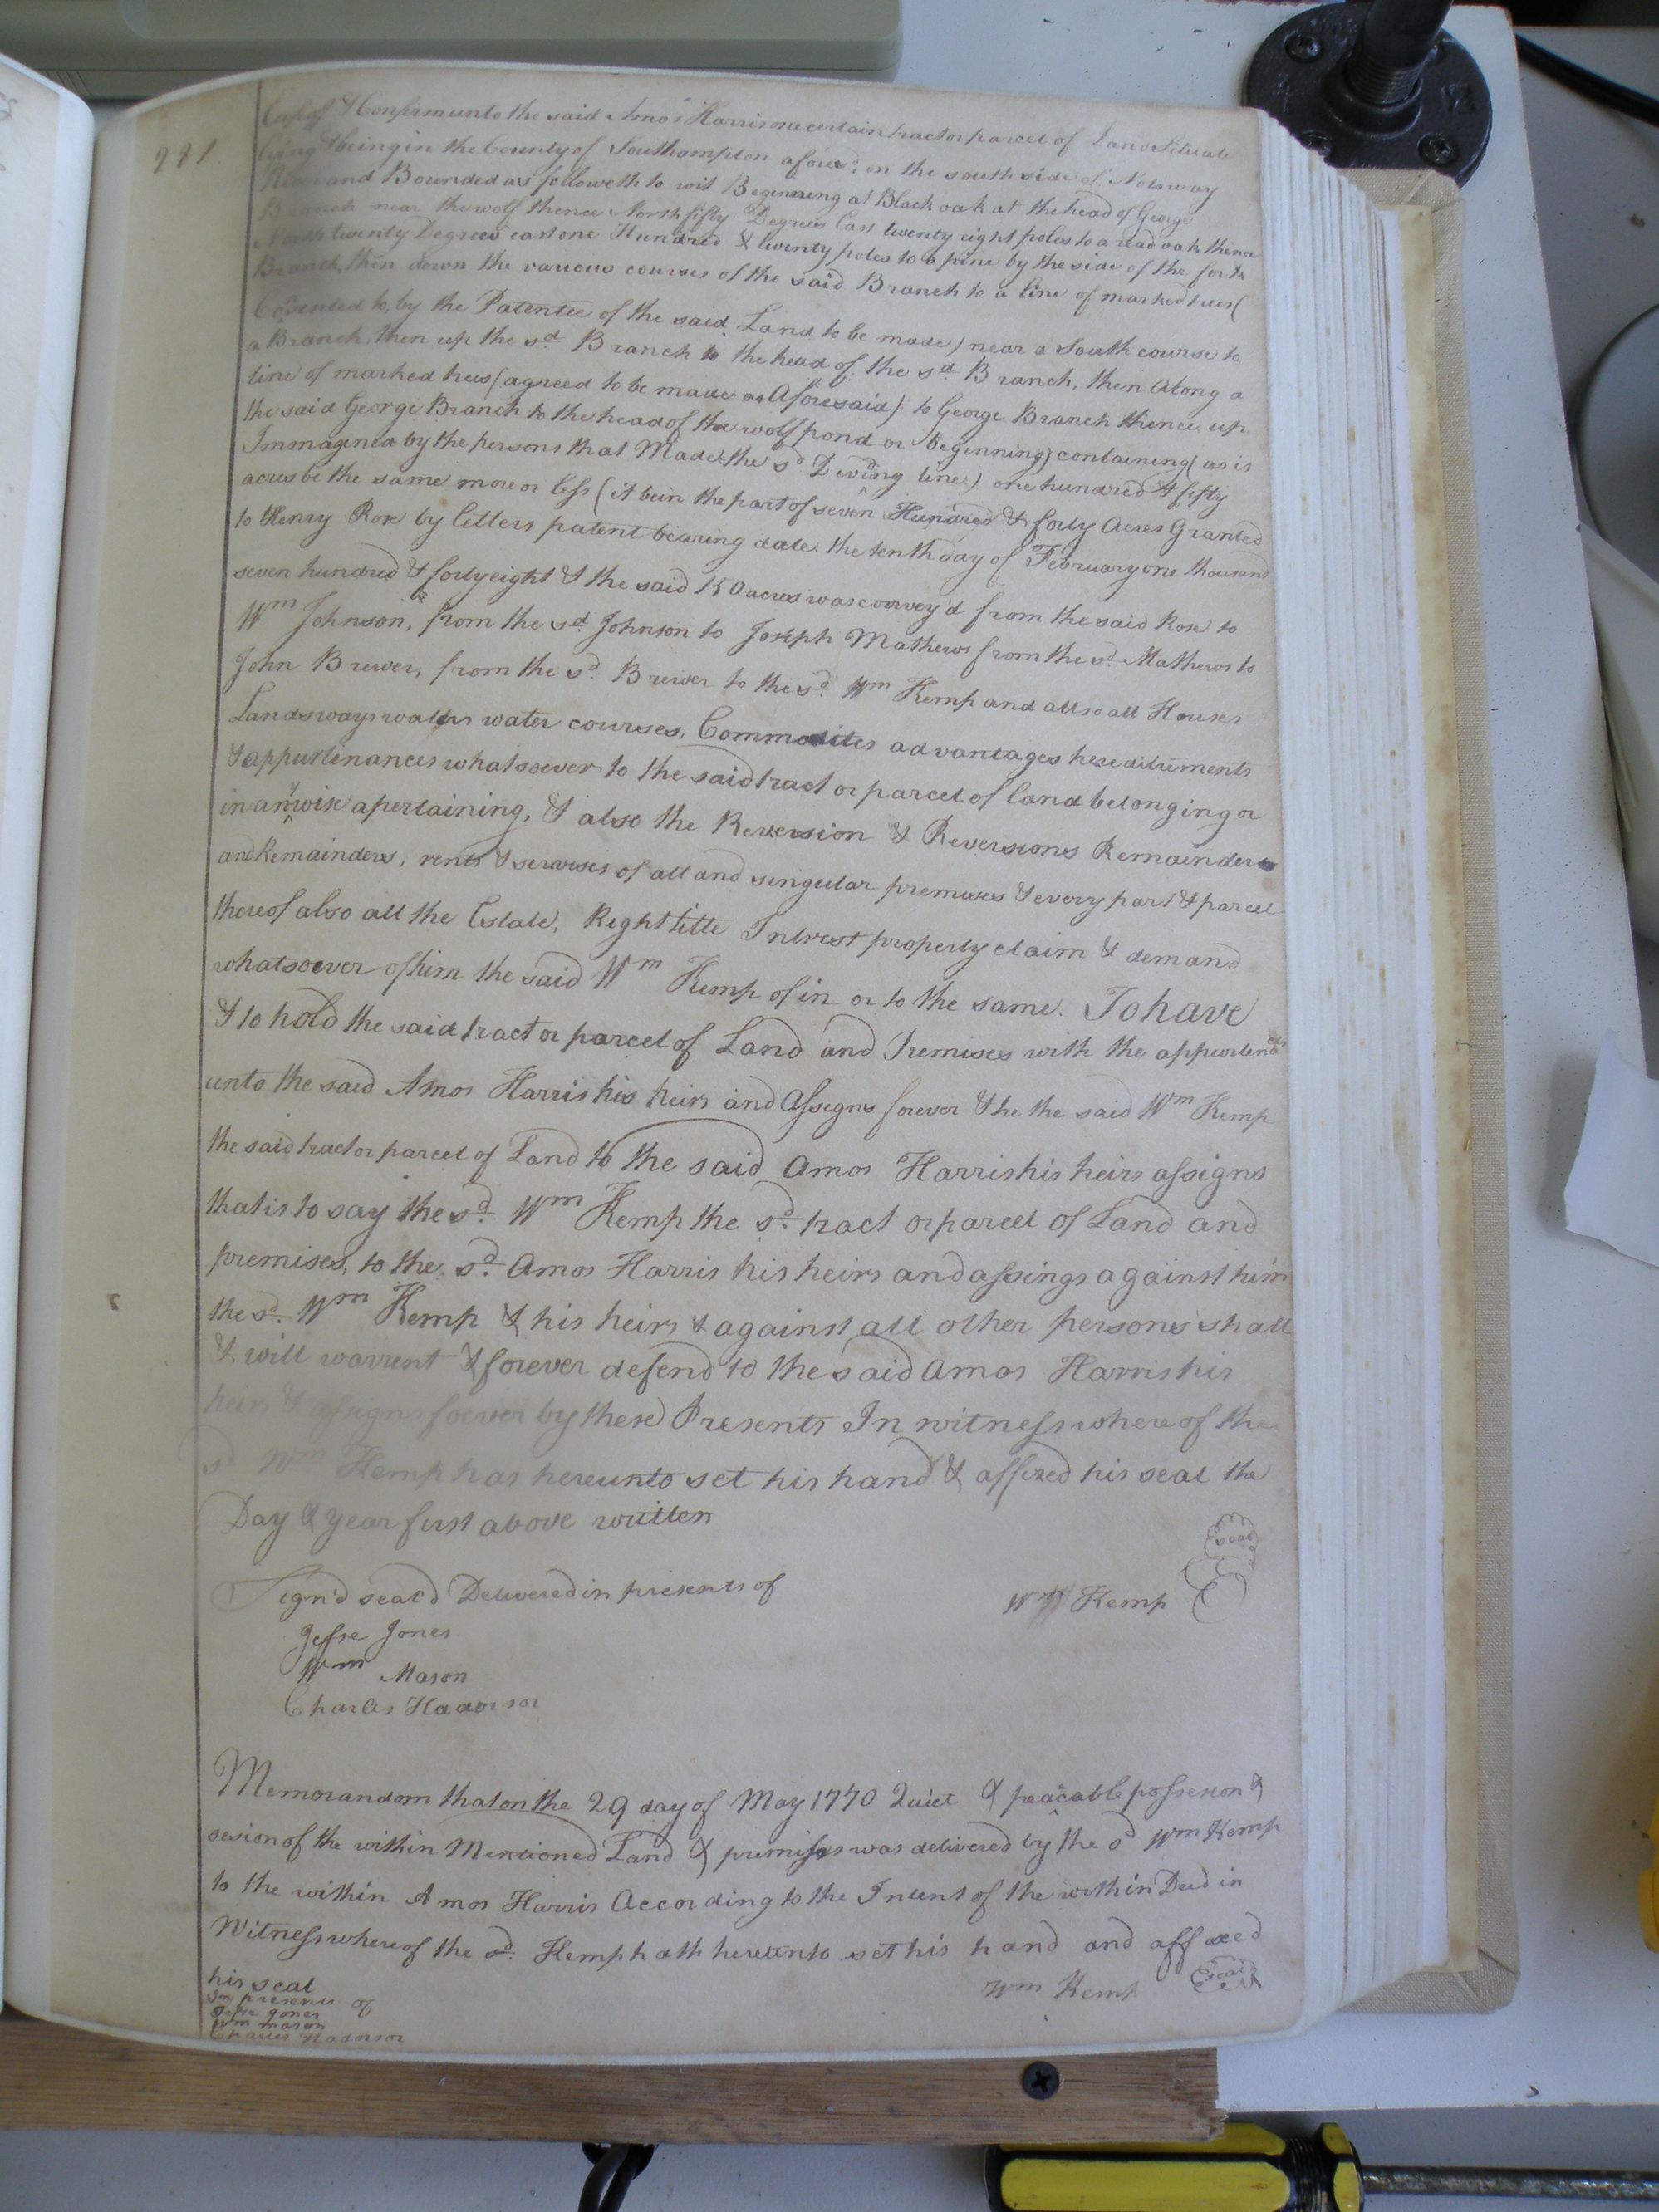 281
& Confirm unto the said Amos Harris one certain tract or parcel of Land Situate
lying & being in the County of Southampton afores.d on the south side of Notoway
River and Bounded as followeth to wit Beginning at Black oak at the head of George
Branch near the wolf thence North fifty Degrees East twenty eight poles to a read oak thence
North twenty Degrees east one Hundred & twenty poles to a pine by the side of the fork
Branch, then down the various courses of the said Branch to a line of marked trees (
to, by the Patentee of the said Land to be made) near a South course to
a Branch, then up the sd Branch to the head of the sd Branch, then along a
line of marked trees (agreed to be made as Aforesaid) to George Branch thence up
the said George Branch to the head of the wolf pond or beginning) containing (as is
Immagined by the persons that Made the sd Dividing lines) one hundred & fifty
acres be the same more or less (it bein the part of seven Hundred & forty Acres Granted
to Henry Rose by letters patent bearing date the tenth day of February one thousand
seven hundred & forty eight & the said 150 acres was convey'd from the said Rose to
Wm Johnson, from the sd Johnson to Joseph Mathews from the sd Mathews to
John Brewer, from the sd Brewer to the sd Wm Kemp and allso all Houses
Lands ways waters water courses, Commodities advantages heseditements
& appurtenances whatsoever to the said tract or parcel of land belonging or
in anywise apertaining, & also the Reversion & Reversions Remainders
and Remainders, rents & servises of all and singular premises & every part & parcel
thereof also all the Estate, Right title Intrest property claim & demand
whatsoever of him the said Wm Kemp of in or to the same. To have
& to hold the said tract or parcel of Land and Premises with the appurtenas
unto the said Amos Harris his heirs and Assigns forever & he the said Wm Kemp
the said tract or parcel of Land to the said Amos Harris his heirs assigns
that is to say the sd Wm Kemp the sd tract or parcel of Land and
premises, to the sd Amos Harris his heirs and assings against him
the sd Wm Kemp & his heirs & against all other persons shall
& will warrent & forever defend to the said Amos Harris his
heirs & assigns forever by these Presents In witness where of the
sd Wm Kemp has hereunto set his hand & affixed his seal the
Day & year first above written
Sign'd seal'd Delivered in presents of
Wm Kemp seal
Jesse Jones
Wm Mason
Charles
Memorandom that on the 29 day of May 1770 Quiet & peacable possesson &
sesion of the within Mentioned Land & premises was delivered by the sd Wm Kemp
to the within Amos Harris According to the Intent of the within Deed in
Witness whereof the sd Kemp hath hereunto set his hand and affixed
his seal
Wm Kemp seal
In presents of
Jesse Jones
Wm Mason
Charles